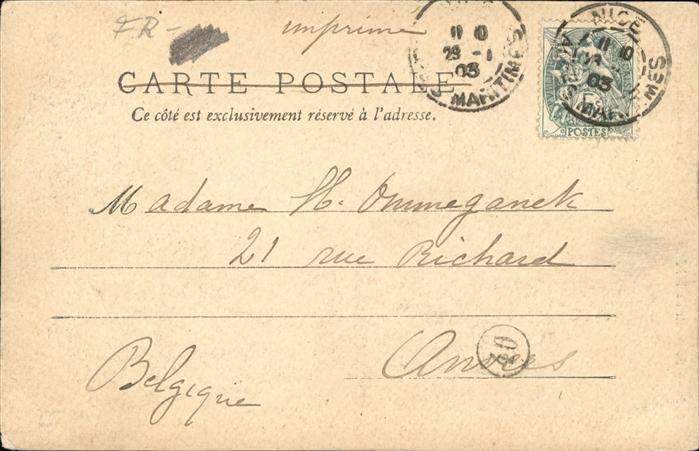 FR-
imprimé
NICE
11 10
29 -1
03
MARITIMES
NICE
11 10
03
ALPES MARITIMES
POSTES
CARTE POSTALE
Ce côté est exclusivement réservé à l'adresse.
Madame H. Ommeganck
21 rue Richard
Anvers
Belgique